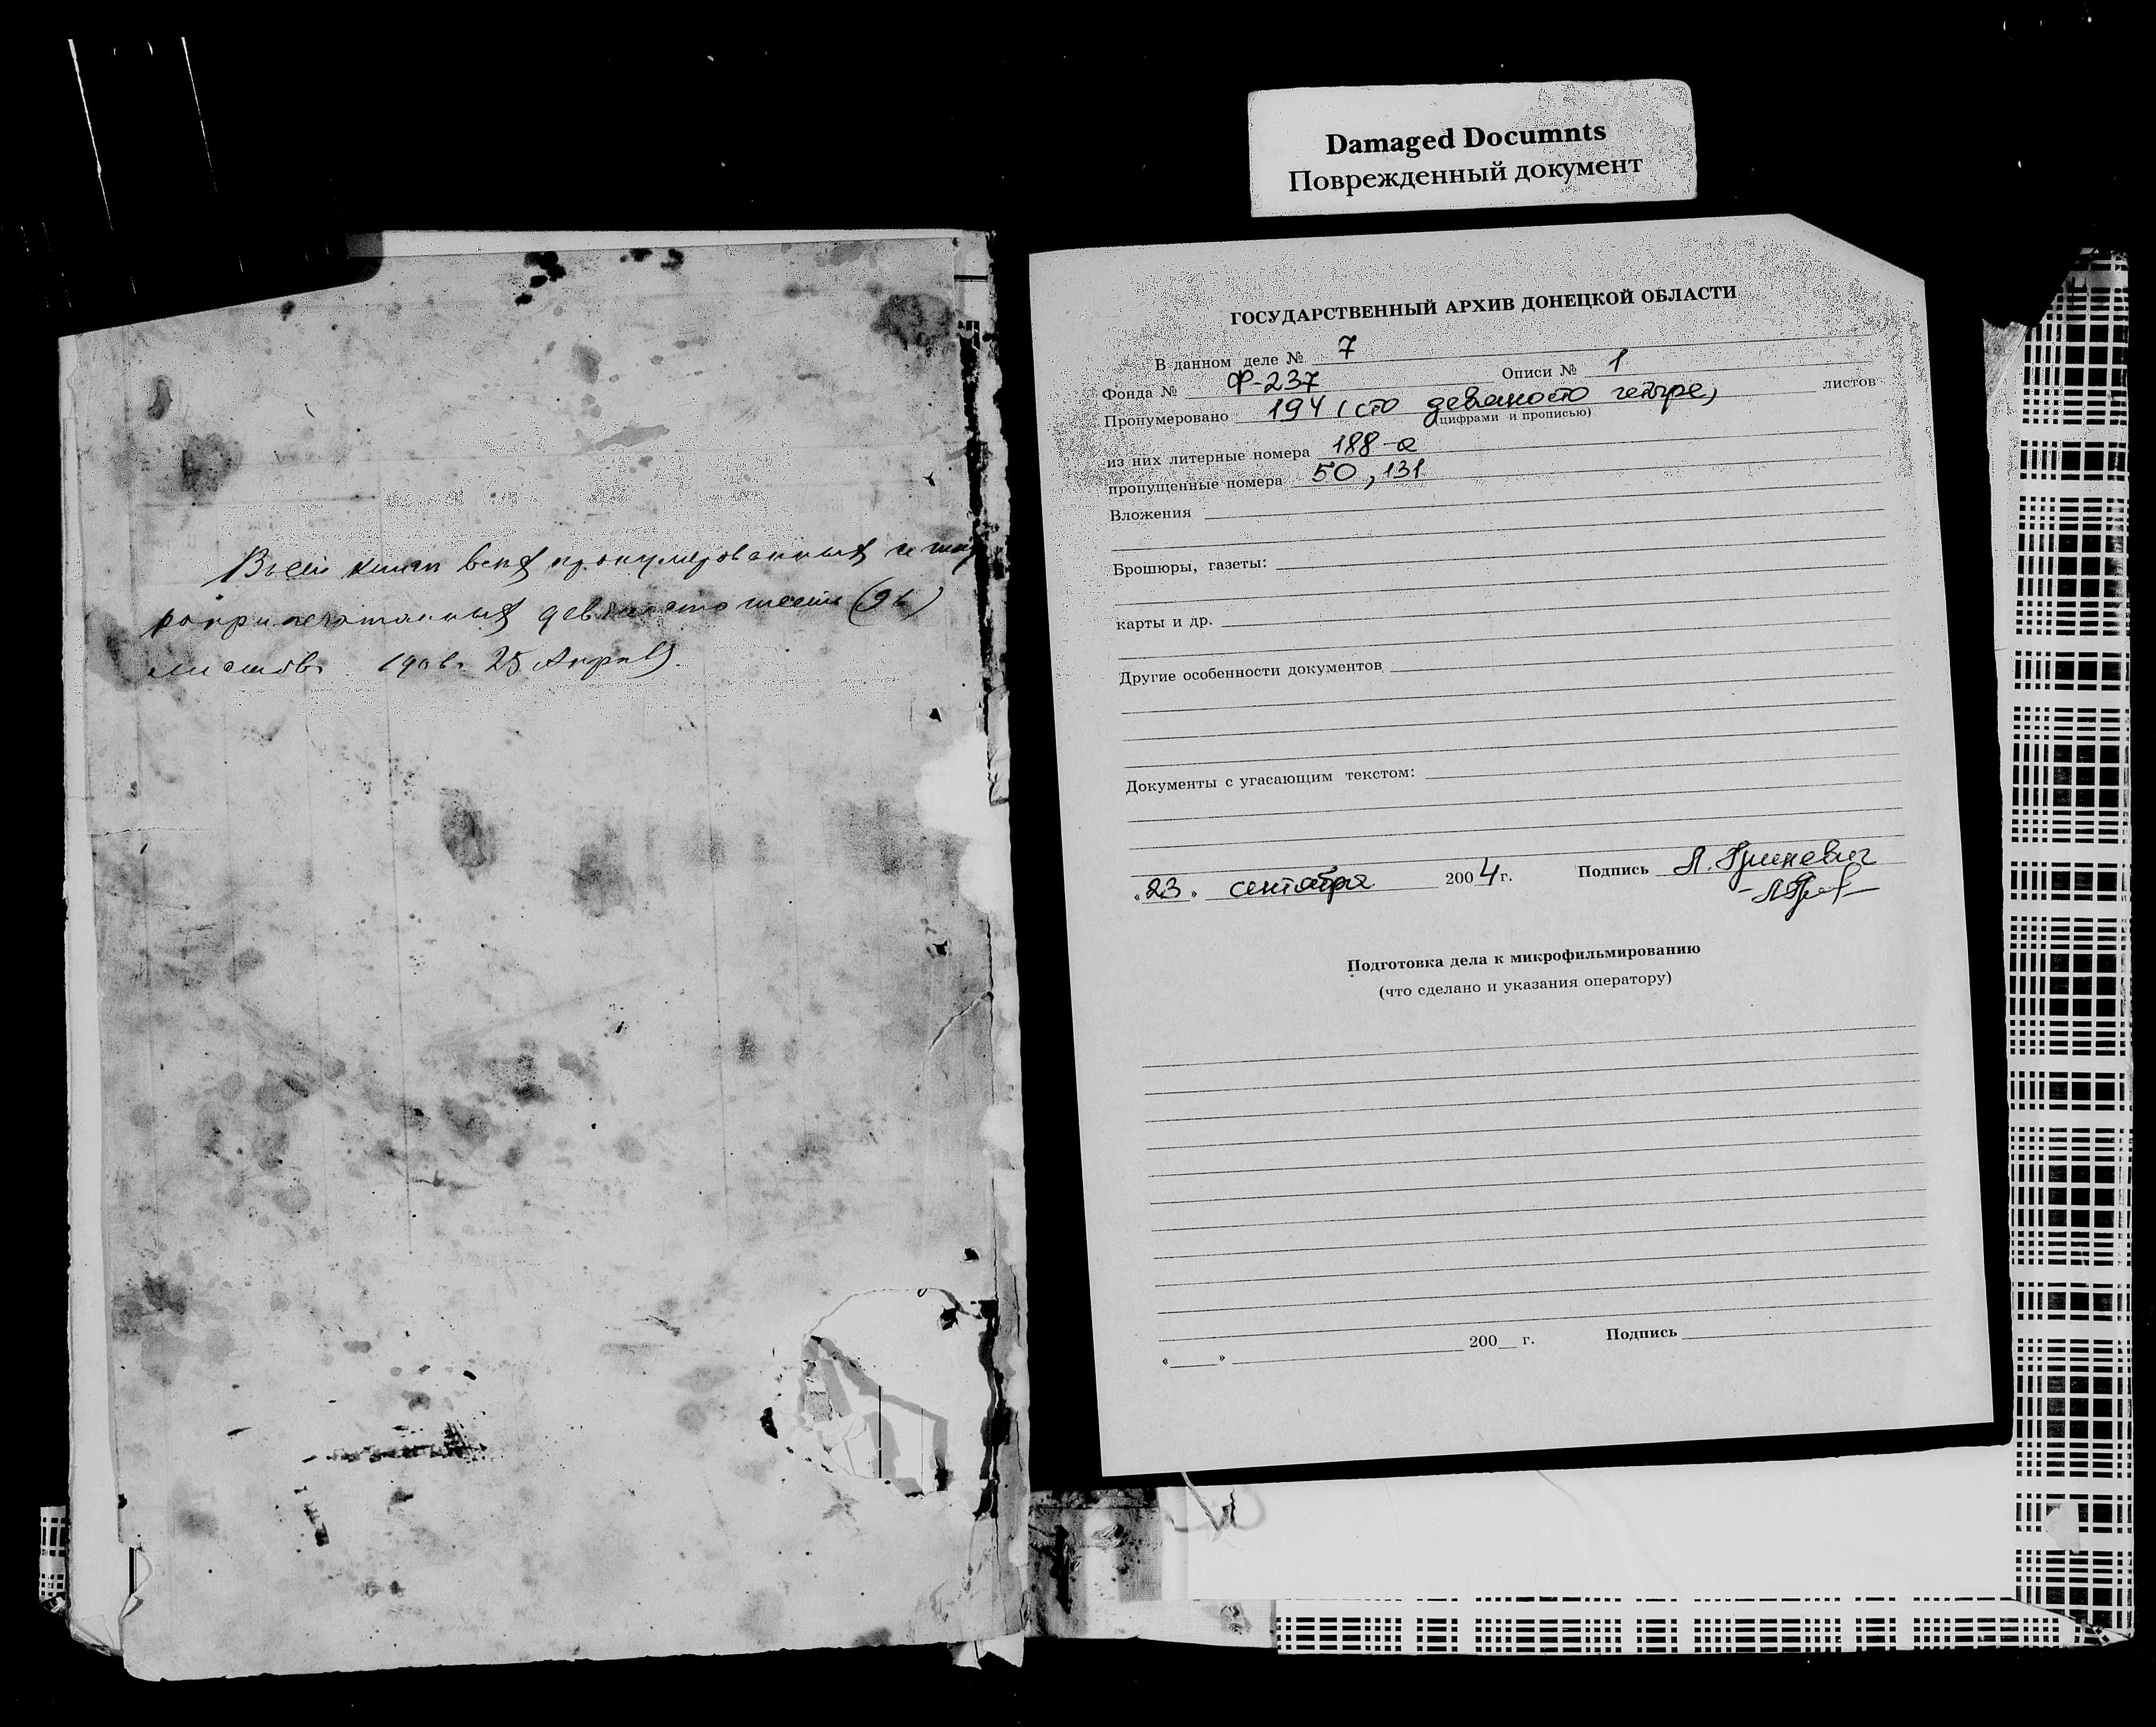 Damaged Documnts
Поврежденный документ
Всей книги всех пронумерованных и шну
роприпечатанных девяносто шесть (96)
листовъ 1906 г. 25 Апреля.
ГОСУДАРСТВЕННЫЙ АРХИВ ДОНЕЦКОЙ ОБЛАСТИ
В данном деле № 7
Фонда № Ф-237 Описи № 1
Пронумеровано 194 (сто девяносто четыре) листов
(цифрами и прописью)
из них литерные номера 188-а
пропущенные номера 50, 131
Вложения
Брошюры, газеты:
карты и др.
Другие особенности документов
Документы с угасающим текстом:
«23» сентября 2004 г. Подпись Л. Гриневич
Подготовка дела к микрофильмированию
(что сделано и указания оператору)
«___» 200__ г. Подпись